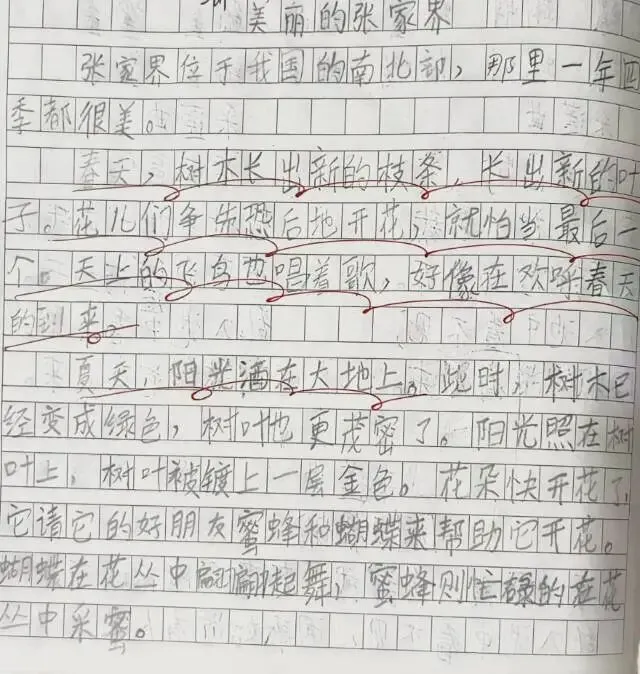 美丽的张家界
张家界位于我国的南北部，那里一年四
季都很美。
春天，树木长出新的枝条，长出新的叶
子。花儿们争先恐后地开花，就怕当最后一
个。天上的飞鸟也唱着歌，好像在欢呼春天
的到来。
夏天，阳光洒在大地上。此时，树木已
经变成绿色，树叶也更茂密了。阳光照在树
叶上，树叶被镀上一层金色。花朵快开花了，
它请它的好朋友蜜蜂和蝴蝶来帮助它开花。
蝴蝶在花丛中翩翩起舞，蜜蜂则忙碌的在花
丛中采蜜。